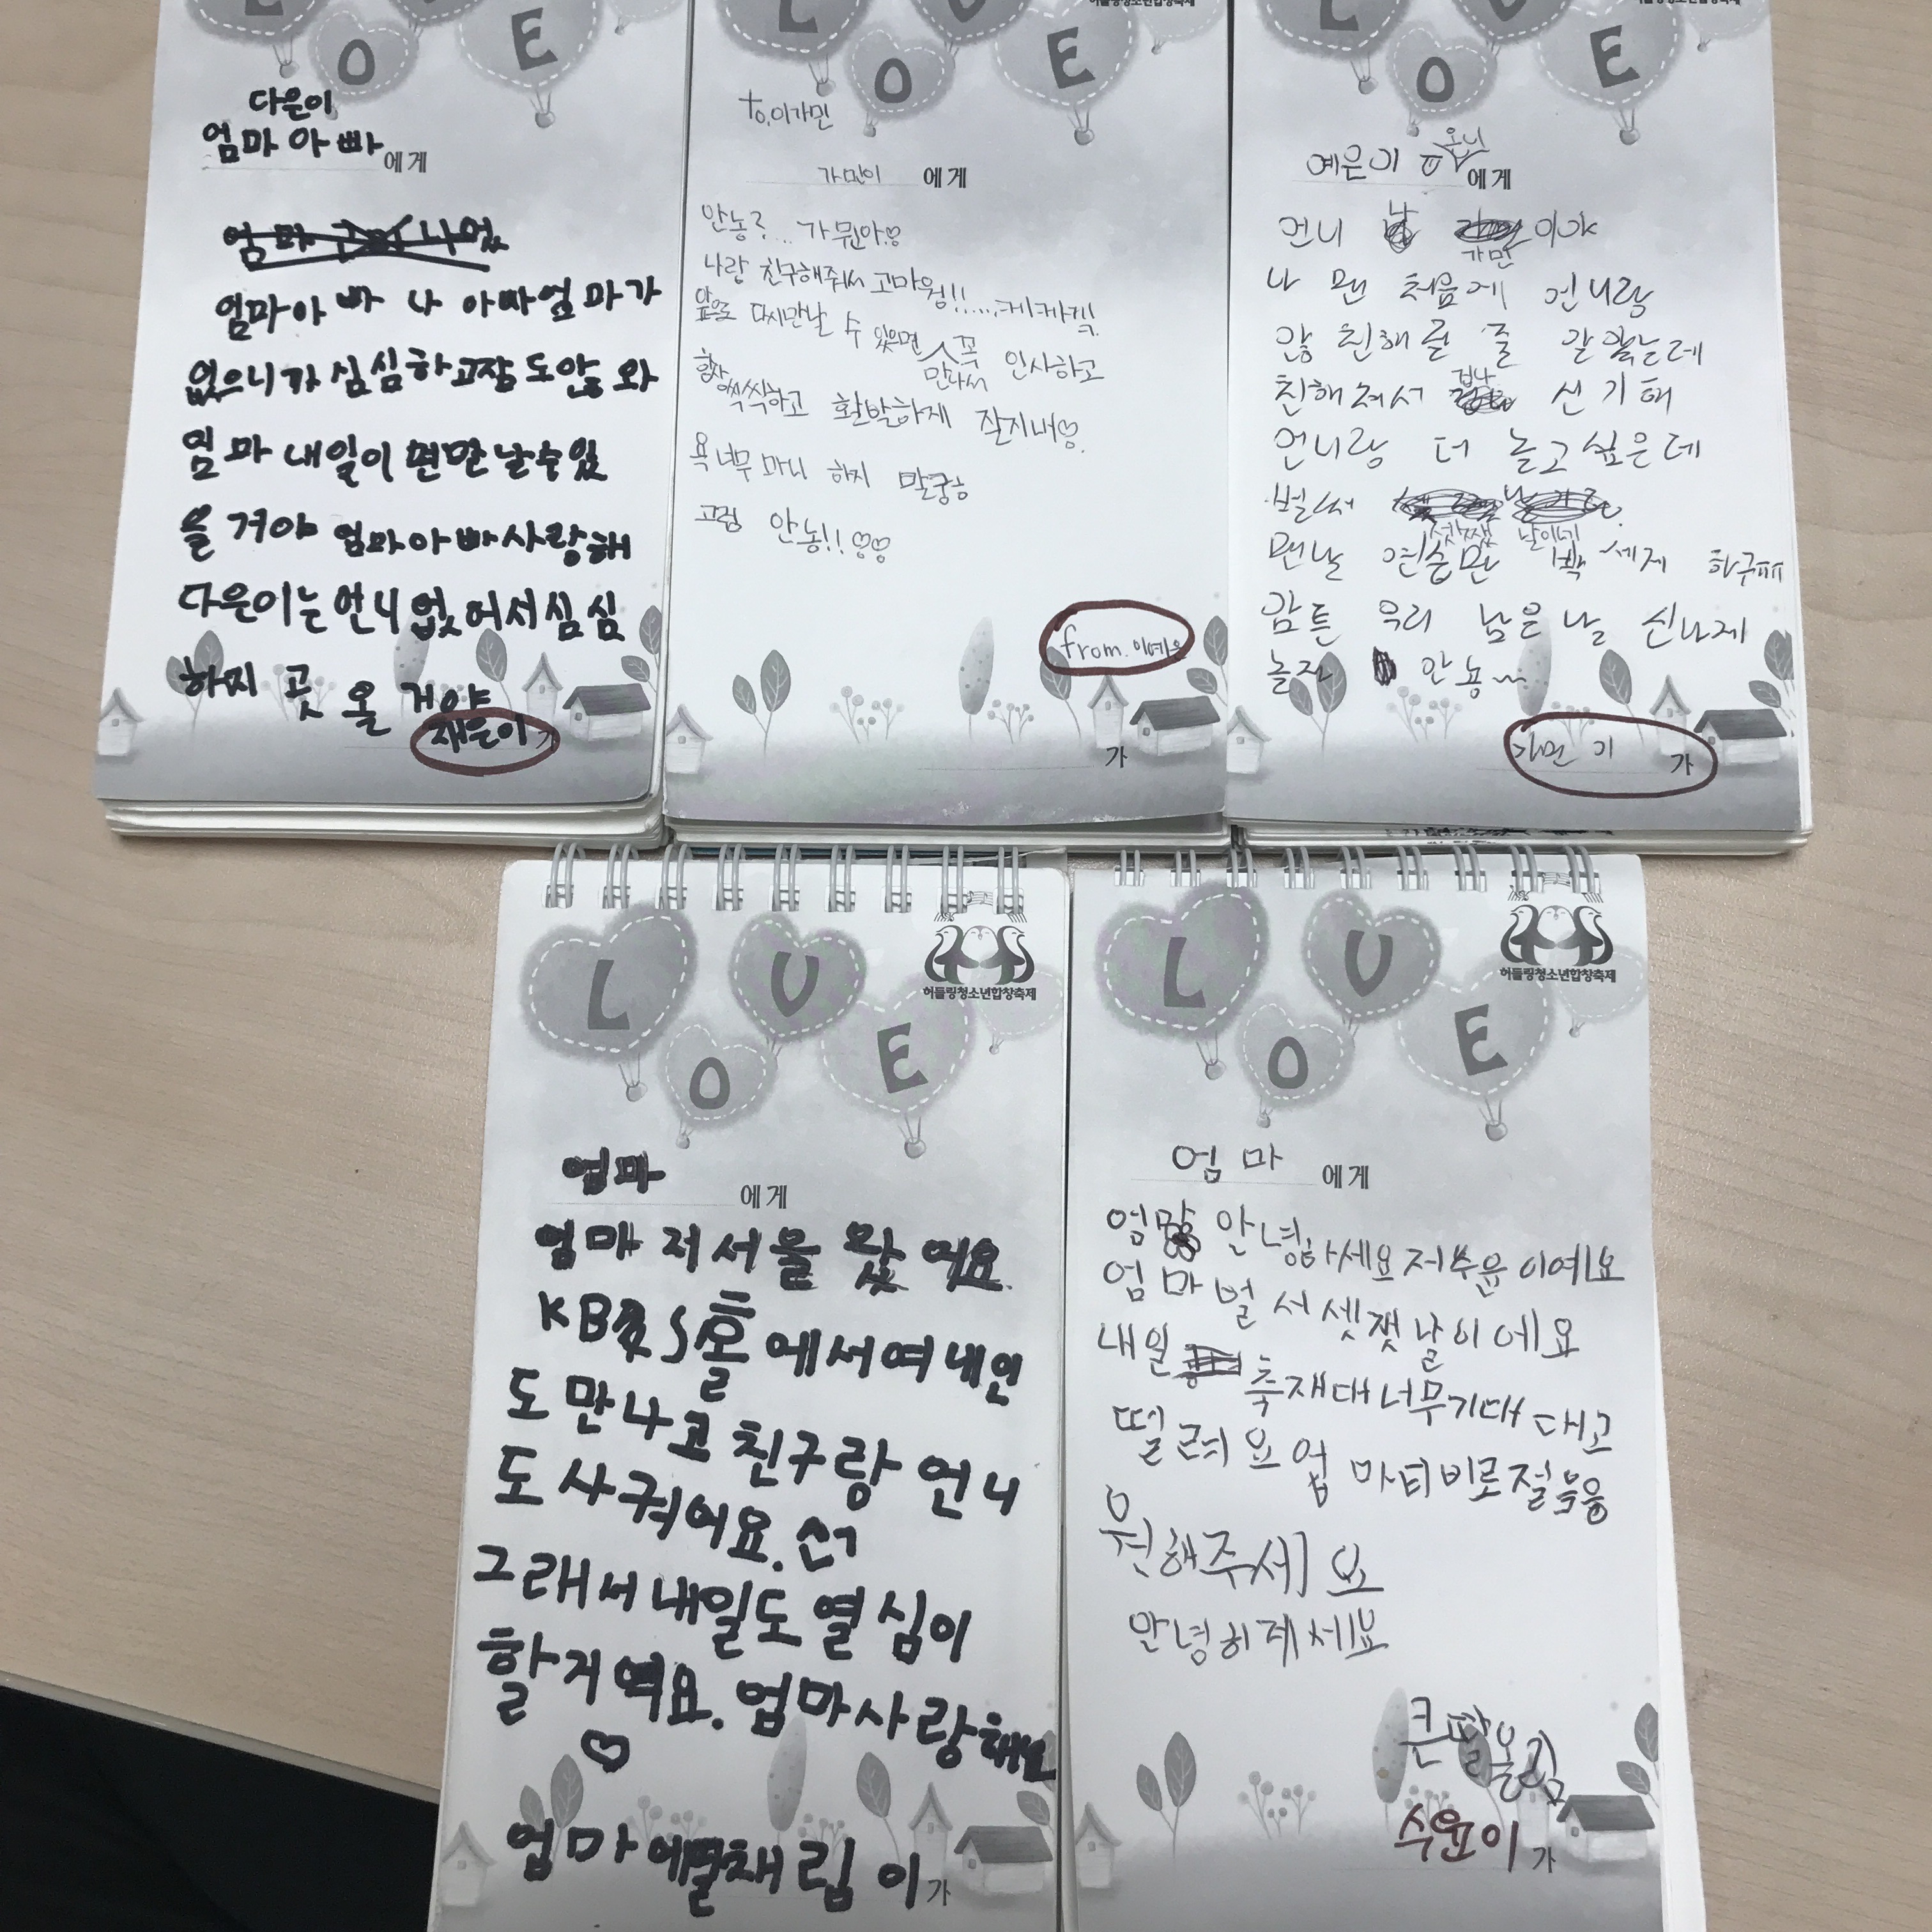 L O V E
다은이
엄마 아빠 에게
엄마아빠 나 아빠엄마가
없으니가 심심하고잠도안와
엄마 내일이면만날수있
을 거야 엄마아빠사랑해
다은이는언니없어서심심
하지 곳 올 거야
재은이가
O V E
to.이가민
가민이 에게
안농?... 가뮌아♡
나랑 친구해줘서 고마웡!!
앞으로 다시만날 수 있으면 만나서 꼭 인사하고
항상 씩씩하고 활발하게 잘지내♡
욕 너무 마니 하지 말궁
그럼 안농!!♡♡
from. 이예은
가
O V E
예은이 에게
언니 나 가민이야
나 맨 처음에 언니랑
않 친해질 줄 알았는데
친해져서 겁나 신기해
언니랑 더 놀고싶은데
벌써 셋쨋 날이네
맨날 연습만 빡세게 하구ㅠㅠ
감튼 우리 남은 날 신나게
놀자 안뇽~
가민이 가
L O V E
허들링청소년합창축제
엄마 에게
엄마 저 서울 왔여요.
KBS홀에서여내인
도만나고친구랑언니
도사귀어요.
그래서내일도열심이
할거여요. 엄마사랑해요
♡
엄마에딸채림이가
L O V E
허들링청소년합창축제
엄마 에게
엄마 안녕하세요저수윤이예요
엄마벌서셋쨋날이에요
내일 축재대너무기대대고
떨려요엄마티비로절붕응
원해주세요
안녕히게세요
큰딸올림
수윤이가